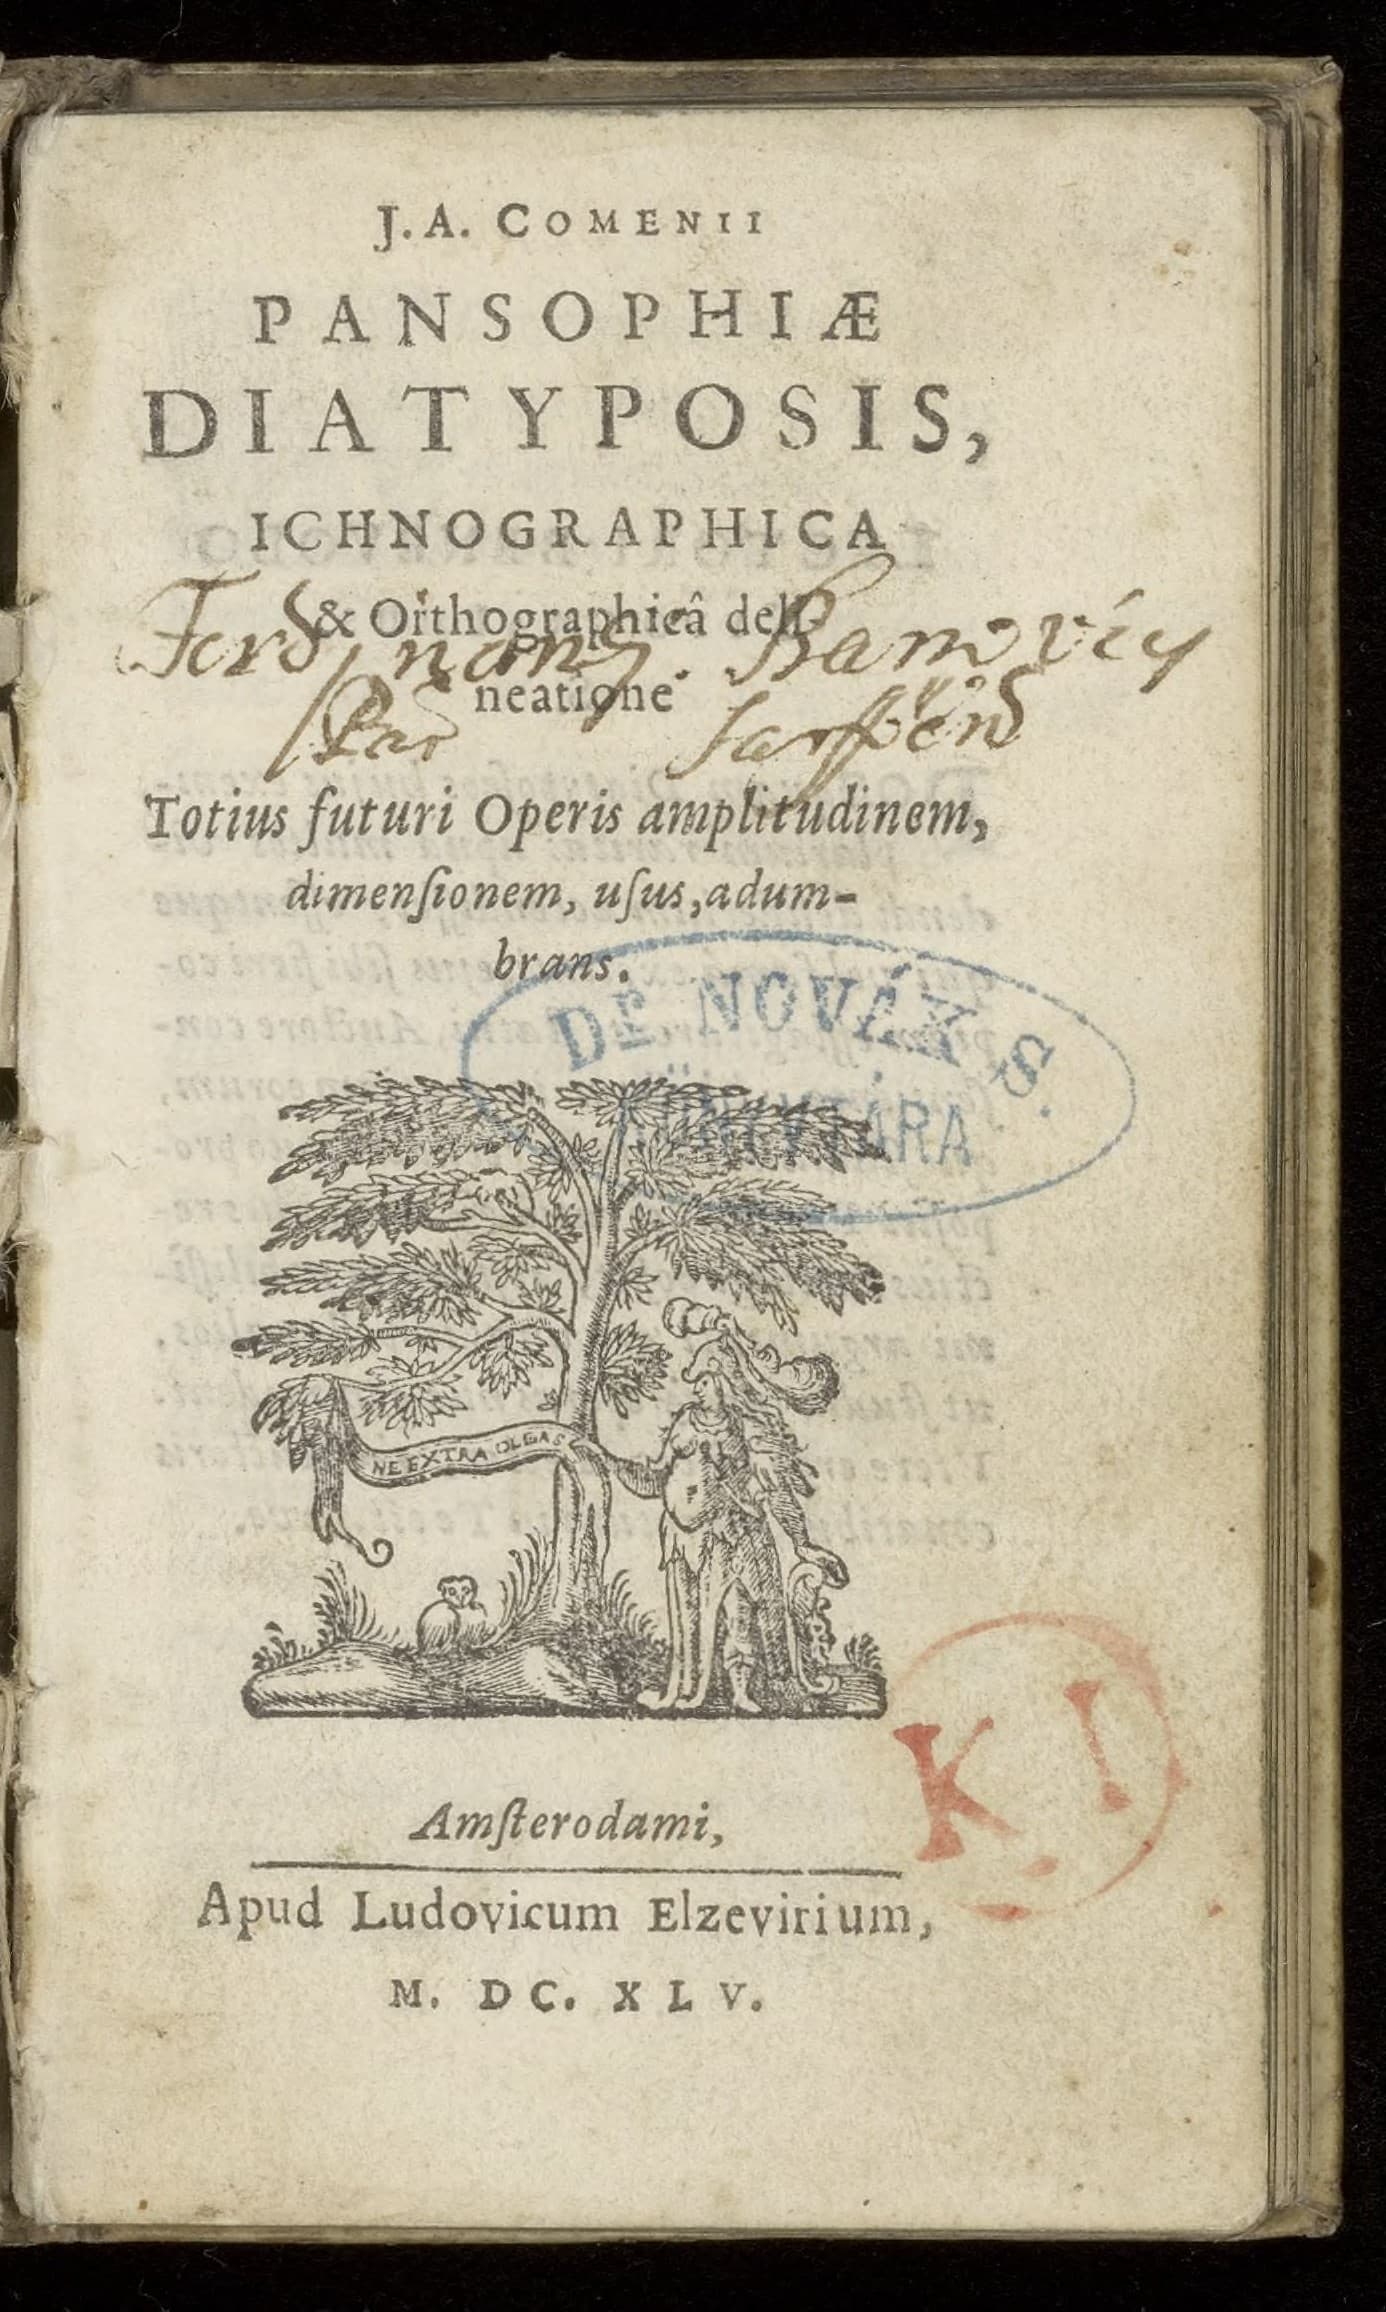 J. A. COMENII
PANSOPHIÆ
DIATYPOSIS,
ICHNOGRAPHICA
& Orthographicâ deli-
neatione
Totius futuri Operis amplitudinem,
dimenſionem, uſus, adum-
brans.
DE NOVÁK S.
KÖNYVTÁRA
NE EXTRA OLEAS
K. I
Amſterodami,
Apud Ludovicum Elzevirium,
M. DC. XLV.